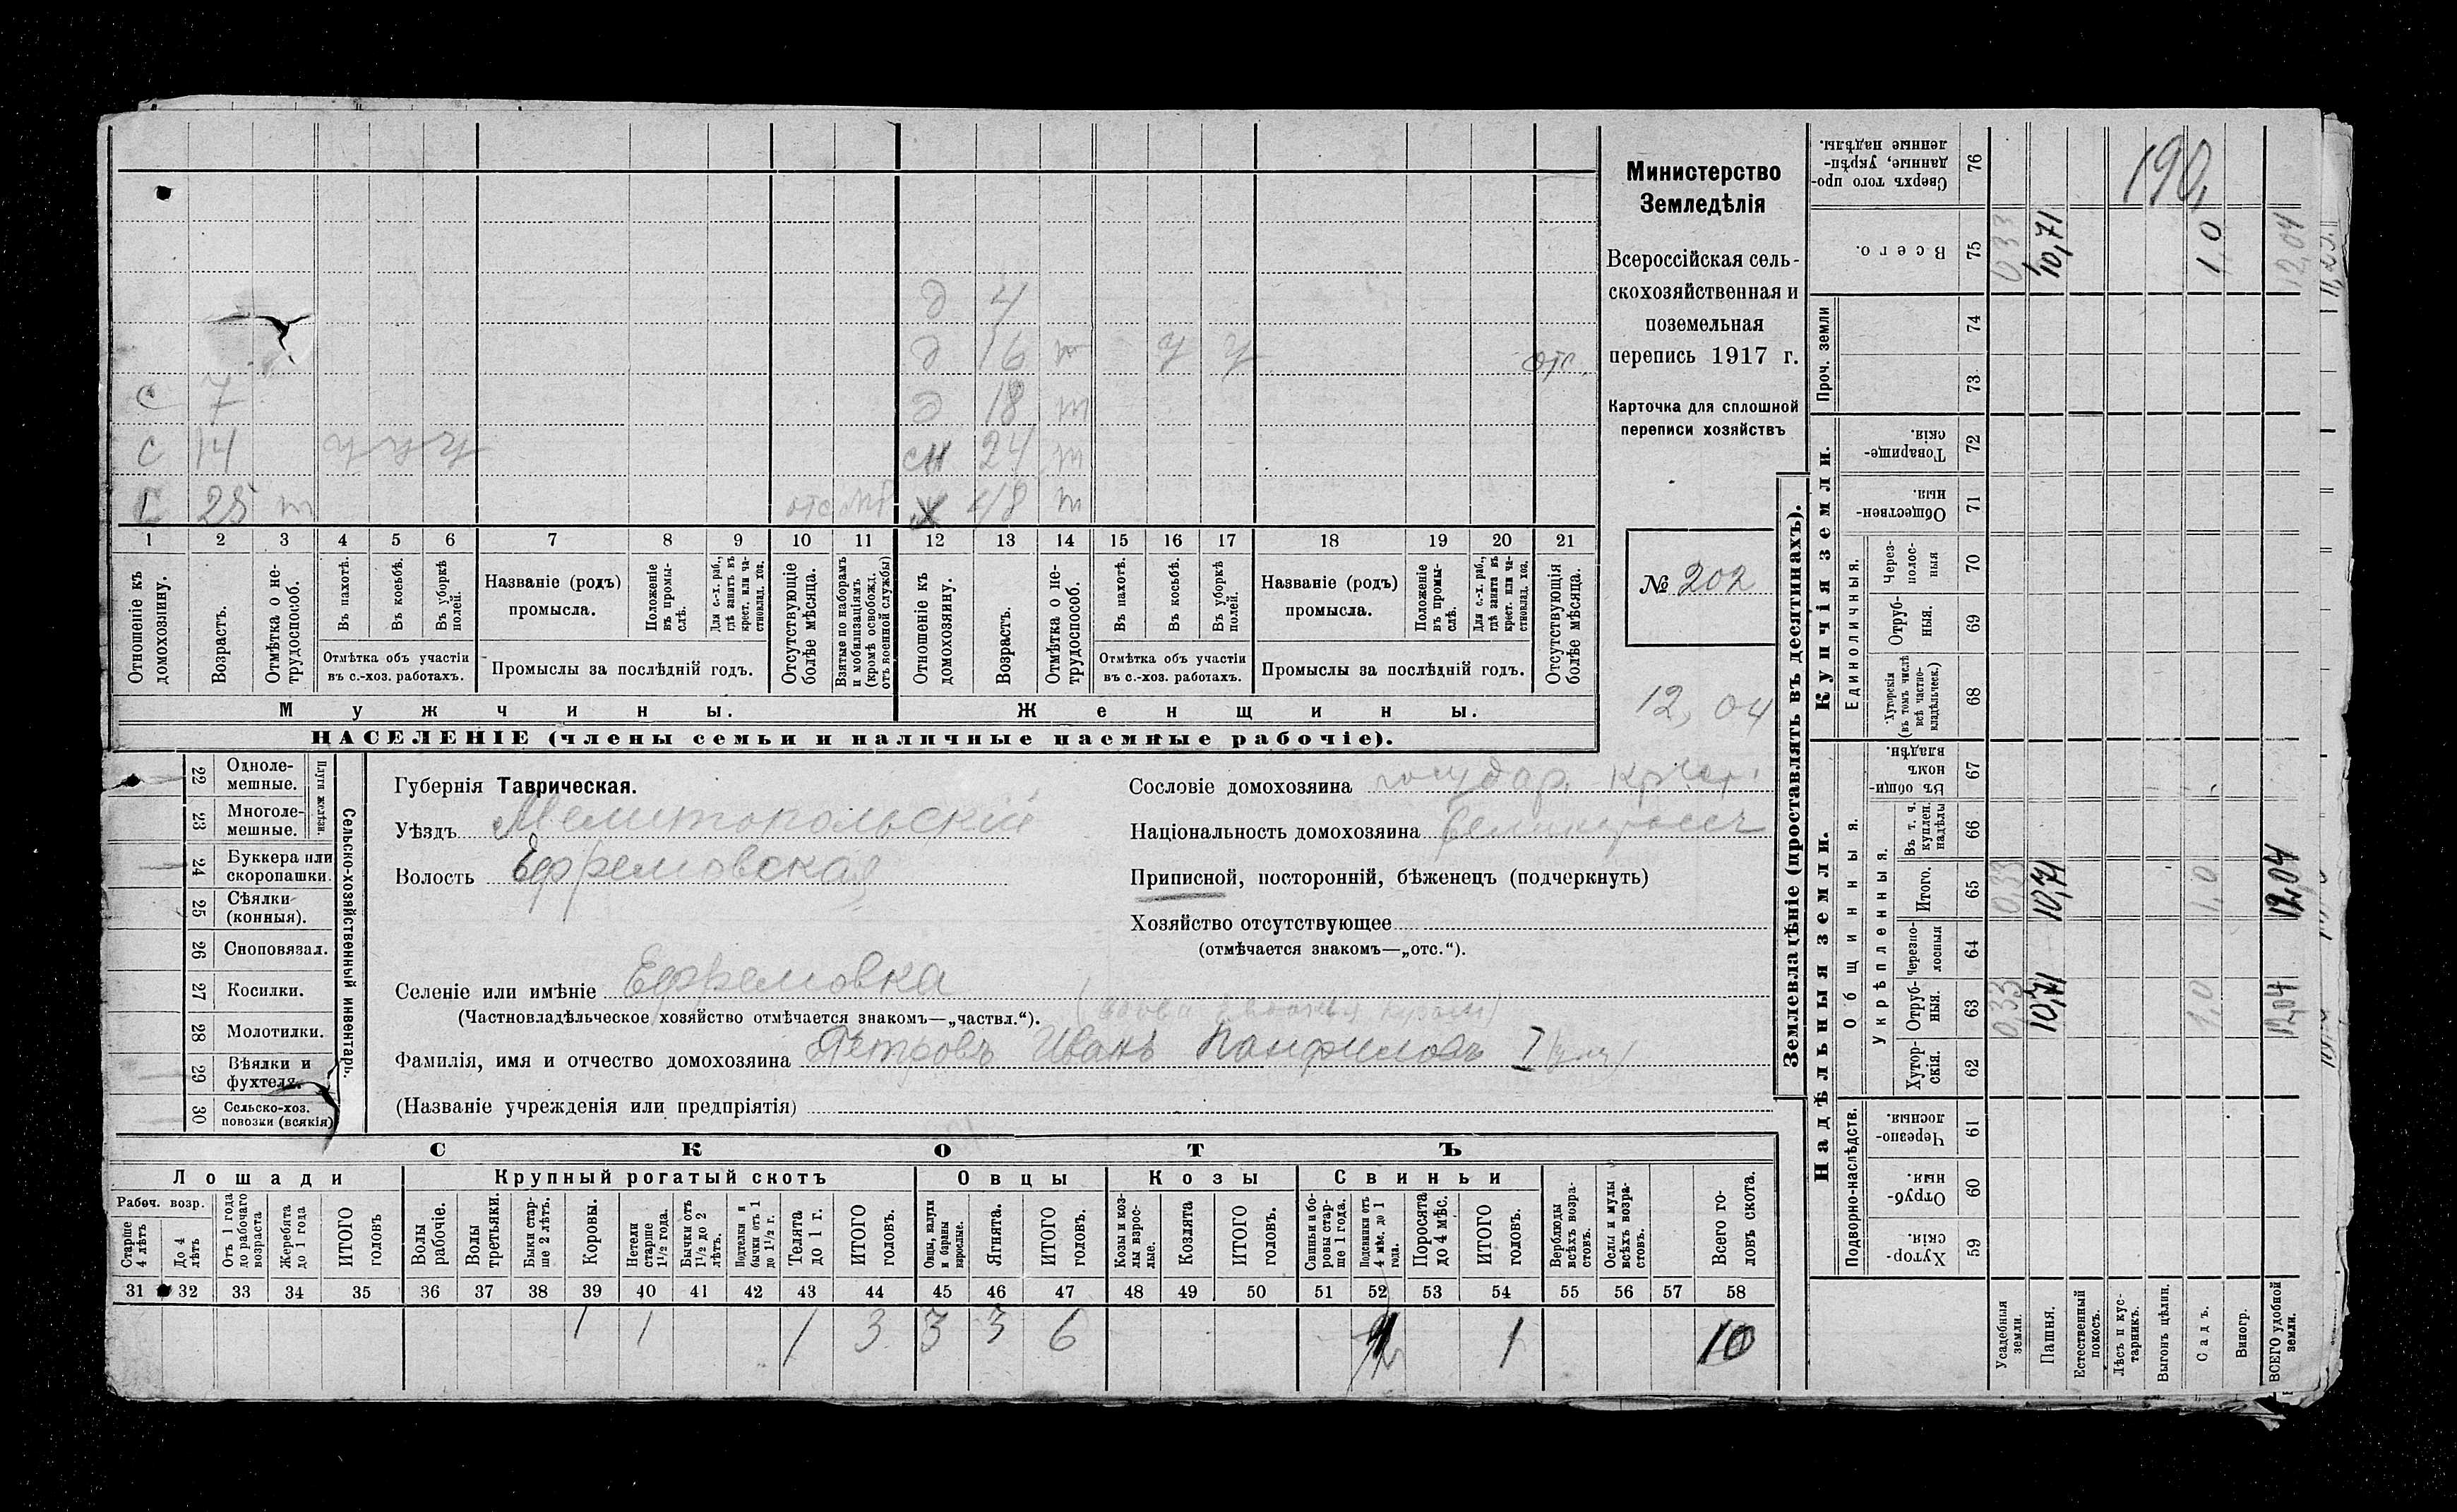 д 4
д 16 т у у отс.
с 7 д 18 т
с 14 у у у сн 24 т
с 25 т отс ж 48 т
1 2 3 4 5 6 7 8 9 10 11 12 13 14 15 16 17 18 19 20 21
Отношеніе къ домохозяину.
Возрастъ.
Отмѣтка о нетрудоспособ.
Въ пахотѣ.
Въ косьбѣ.
Въ уборкѣ полей.
Отмѣтка объ участіи
въ с.-хоз. работахъ.
Названіе (родъ)
промысла.
Положеніе въ промыслѣ.
Для с.-х. раб., гдѣ занятъ въ крест. или частновлад. хоз.
Промыслы за послѣдній годъ.
Отсутствующіе болѣе мѣсяца.
Взятые по наборамъ и мобилизаціямъ (кромѣ освобожд. отъ военной службы)
Отношеніе къ домохозяину.
Возрастъ.
Отмѣтка о нетрудоспособ.
Въ пахотѣ.
Въ косьбѣ.
Въ уборкѣ полей.
Отмѣтка объ участіи
въ с.-хоз. работахъ.
Названіе (родъ)
промысла.
Положеніе въ промыслѣ.
Для с.-х. раб., гдѣ занята въ крест. или частновлад. хоз.
Промыслы за послѣдній годъ.
Отсутствующія болѣе мѣсяца.
Мужчины. Женщины.
НАСЕЛЕНІЕ (члены семьи и наличные наемные рабочіе).
Министерство
Земледѣлія
Всероссійская сель-
скохозяйственная и
поземельная
перепись 1917 г.
Карточка для сплошной
переписи хозяйствъ
№ 202
12,04
Сельско-хозяйственный инвентарь.
Плуги желѣзн.
22 Одноле-
мешные.
23 Многоле-
мешные.
24 Буккера или
скоропашки.
25 Сѣялки
(конныя).
26 Сноповязал.
27 Косилки.
28 Молотилки.
29 Вѣялки и
фухтеля.
30 Сельско-хоз.
повозки (всякія)
Губернія Таврическая.
Уѣздъ Мелитопольскій
Волость Ефремовская
Селеніе или имѣніе Ефремовка
(Частновладѣльческое хозяйство отмѣчается знакомъ—„частвл.“).
Фамилія, имя и отчество домохозяина Петровъ Иванъ Панфиловъ I
(Названіе учрежденія или предпріятія)
Сословіе домохозяина государ. крест.
Національность домохозяина великороссъ
Приписной, посторонній, бѣженецъ (подчеркнуть)
Хозяйство отсутствующее
(отмѣчается знакомъ—„отс.“).
СКОТЪ
Лошади Крупный рогатый скотъ Овцы Козы Свиньи
Рабоч. возр.
Старше 4 лѣтъ
До 4 лѣтъ
Отъ 1 года до рабочаго возраста
Жеребята до 1 года
ИТОГО головъ
Волы рабочіе.
Волы третьяки.
Быки старше 2 лѣтъ.
Коровы.
Нетели старше 1½ года.
Бычки отъ 1½ до 2 лѣтъ.
Подтелки и бычки отъ 1 до 1½ г.
Телята до 1 г.
ИТОГО головъ.
Овцы, валухи и бараны взрослые.
Ягнята.
ИТОГО головъ.
Козы и козлы взрослые.
Козлята
ИТОГО головъ.
Свиньи и боровы старше 1 года.
Подсвинки отъ 4 мѣс. до 1 года.
Поросята до 4 мѣс.
ИТОГО головъ.
Верблюды всѣхъ возрастовъ.
Ослы и мулы всѣхъ возрастовъ.
Всего головъ скота.
31 32 33 34 35 36 37 38 39 40 41 42 43 44 45 46 47 48 49 50 51 52 53 54 55 56 57 58
1 1 1 3 3 3 6 1 1 10
Землевладѣніе (проставлять въ десятинахъ).
Надѣльныя земли. Купчія земли.
Подворно-наслѣдств.
Общинныя.
Укрѣпленныя.
Единоличныя.
Проч. земли
Хутор-
скія. 59
Отруб-
ныя. 60
Черезпо-
лосныя 61
Хутор-
скія. 62
Отруб-
ныя. 63
Черезпо-
лосныя 64
Итого. 65
Въ т. ч. куплен. надѣлы 66
Въ общи-
номъ владѣн. 67
Хуторскія (въ томъ числѣ всѣ частновладѣльческ.) 68
Отруб-
ныя. 69
Через-
полос-
ныя 70
Обществен-
ныя. 71
Товарище-
скія. 72
73
74
Всего. 75
Сверхъ того про-
данные, укрѣп-
ленные надѣлы. 76
Усадебныя земли. 0,33 0,33 0,33
Пашня. 10,71 10,71 10,71
Естественный покосъ.
Лѣсъ и кус-
тарникъ.
Выгонъ цѣлин.
Садъ. 1,0 1,0 1,0
Виногр.
ВСЕГО удобной земли. 12,04 12,04 12,04
190,